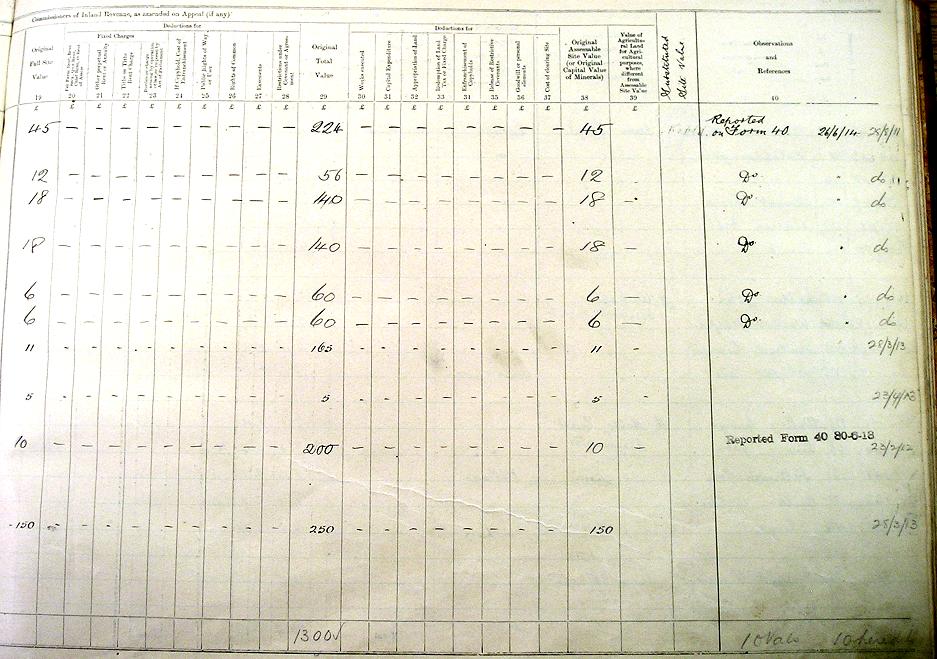 Commissioners of Inland Revenue, as amended on Appeal (if any)
Deductions for
Deductions for
Fixed Charges
Original Full Site Value
Other perpetual Rent or Annuity
Tithe or Tithe Rent Charge
If Copyhold, Cost of Enfranchisement
Public Rights of Way or User
Rights of Common
Easements
Restrictions under Covenant or Agreement
Original Total Value
Works executed
Capital Expenditure
Appropriation of Land
Redemption of Land Tax or Fixed Charge
Enfranchisement of Copyholds
Release of Restrictive Covenants
Goodwill or personal elements
Cost of clearing Site
Original Assessable Site Value (or Original Capital Value of Minerals)
Value of Agricultural Land for Agricultural purposes, where different from Assessable Site Value
Substituted Site Value
Observations and References
19 20 21 22 23 24 25 26 27 28 29 30 31 32 33 34 35 36 37 38 39 40
£ £ £ £ £ £ £ £ £ £ £ £ £ £ £ £ £ £ £ £ £
45 — — — — — — — — — 224 — — — — — — — — 45 — Reported on Form 40. 26/6/14
12 — — — — — — — — — 56 — — — — — — — — 12 — Do " do
18 — — — — — — — — — 140 — — — — — — — — 18 — Do " do
18 — — — — — — — — — 140 — — — — — — — — 18 — Do " do
6 — — — — — — — — — 60 — — — — — — — — 6 — Do " do
6 — — — — — — — — — 60 — — — — — — — — 6 — Do " do
11 - - - - - - - - - 165 - - - - - - - - 11 - 28/3/13
5 - - - - - - - - - 5 - - - - - - - - 5 - 23/4/13
10 — — — — — — — — — 200 — — — — — — — — 10 — Reported Form 40 30-6-13 23/2/12
150 - - - - - - - - 250 - - - - - - - - 150 - 25/3/13
1300 10 Vals